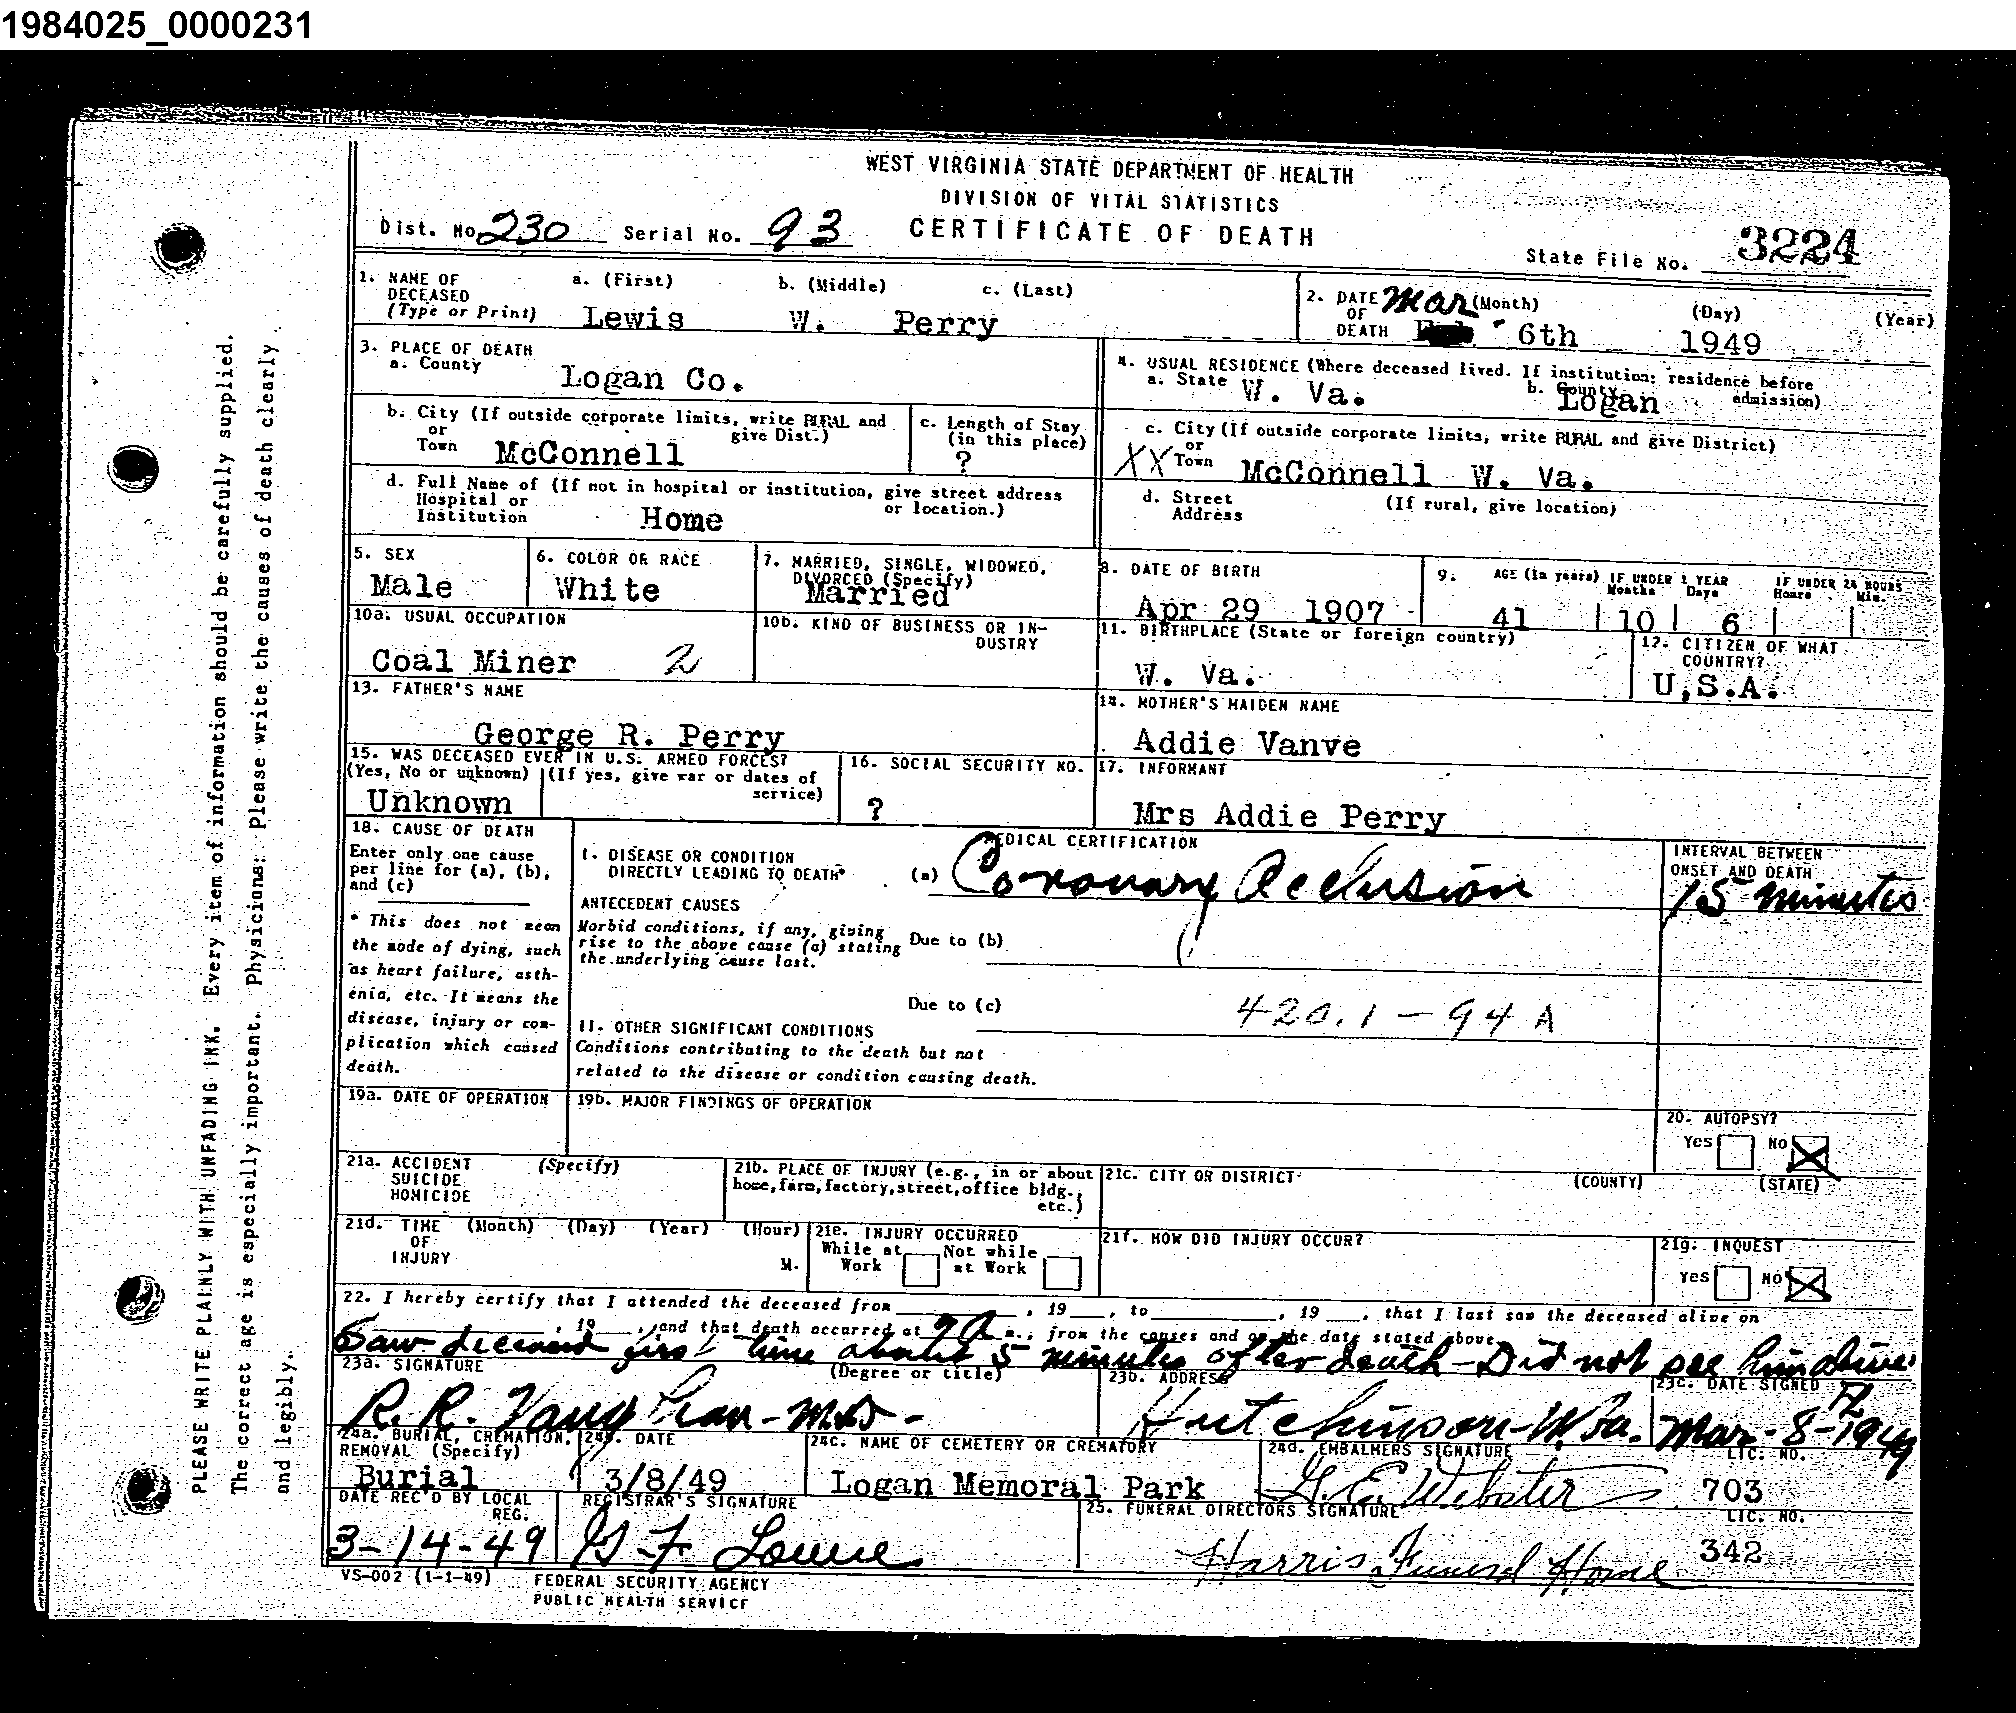 1984025_0000231
WEST VIRGINIA STATE DEPARTMENT OF HEALTH
DIVISION OF VITAL STATISTICS
CERTIFICATE OF DEATH
Dist. No. 230 Serial No. 93
State File No. 3224
1. NAME OF DECEASED (Type or Print) a. (First) b. (Middle) c. (Last)
Lewis W. Perry
2. DATE OF DEATH (Month) (Day) (Year)
Mar 6th 1949
3. PLACE OF DEATH
a. County Logan Co.
b. City (If outside corporate limits, write RURAL and give Dist.) or Town McConnell
c. Length of Stay (in this place) ?
d. Full Name of Hospital or Institution (If not in hospital or institution, give street address or location.) Home
4. USUAL RESIDENCE (Where deceased lived. If institution: residence before admission)
a. State W. Va. b. County Logan
c. City (If outside corporate limits, write RURAL and give District) or Town XX McConnell W. Va.
d. Street Address (If rural, give location)
5. SEX Male
6. COLOR OR RACE White
7. MARRIED, SINGLE, WIDOWED, DIVORCED (Specify) Married
8. DATE OF BIRTH Apr 29 1907
9. AGE (In years) 41 IF UNDER 1 YEAR Months 10 Days 6 IF UNDER 24 HOURS Hours Min.
10a. USUAL OCCUPATION Coal Miner 2
10b. KIND OF BUSINESS OR INDUSTRY
11. BIRTHPLACE (State or foreign country) W. Va.
12. CITIZEN OF WHAT COUNTRY? U.S.A.
13. FATHER'S NAME George R. Perry
14. MOTHER'S MAIDEN NAME Addie Vanve
15. WAS DECEASED EVER IN U.S. ARMED FORCES? (Yes, No or unknown) (If yes, give war or dates of service) Unknown
16. SOCIAL SECURITY NO. ?
17. INFORMANT Mrs Addie Perry
18. CAUSE OF DEATH
Enter only one cause per line for (a), (b), and (c)
* This does not mean the mode of dying, such as heart failure, asthenia, etc. It means the disease, injury or complication which caused death.
MEDICAL CERTIFICATION
I. DISEASE OR CONDITION DIRECTLY LEADING TO DEATH* (a) Coronary Occlusion
INTERVAL BETWEEN ONSET AND DEATH 15 minutes
ANTECEDENT CAUSES
Morbid conditions, if any, giving rise to the above cause (a) stating the underlying cause last.
Due to (b)
Due to (c)
420.1 - 94 A
II. OTHER SIGNIFICANT CONDITIONS
Conditions contributing to the death but not related to the disease or condition causing death.
19a. DATE OF OPERATION
19b. MAJOR FINDINGS OF OPERATION
20. AUTOPSY? Yes No X
21a. ACCIDENT SUICIDE HOMICIDE (Specify)
21b. PLACE OF INJURY (e.g., in or about home, farm, factory, street, office bldg., etc.)
21c. CITY OR DISTRICT (COUNTY) (STATE)
21d. TIME OF INJURY (Month) (Day) (Year) (Hour) M.
21e. INJURY OCCURRED While at Work Not while at Work
21f. HOW DID INJURY OCCUR?
21g. INQUEST Yes No X
22. I hereby certify that I attended the deceased from , 19 , to , 19 , that I last saw the deceased alive on
, 19 , and that death occurred at 9 A m., from the causes and on the date stated above.
Saw deceased first time about 5 minutes after death - Did not see him alive
23a. SIGNATURE (Degree or title) R. R. Vaughan - M.D.
23b. ADDRESS Hutchinson - W. Va.
23c. DATE SIGNED Mar - 8 - 1949
24a. BURIAL, CREMATION, REMOVAL (Specify) Burial
24b. DATE 3/8/49
24c. NAME OF CEMETERY OR CREMATORY Logan Memoral Park
24d. EMBALMERS SIGNATURE G. E. Webster LIC. NO. 703
DATE REC'D BY LOCAL REG. 3-14-49
REGISTRAR'S SIGNATURE
25. FUNERAL DIRECTORS SIGNATURE Harris Funeral Home LIC. NO. 342
VS-002 (1-1-49)
FEDERAL SECURITY AGENCY
PUBLIC HEALTH SERVICE
PLEASE WRITE PLAINLY WITH UNFADING INK. Every item of information should be carefully supplied.
The correct age is especially important. Physicians: Please write the causes of death clearly
and legibly.